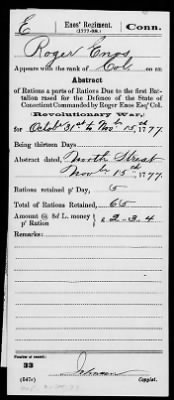 E | Enos' Regiment. (1777-78.) | Conn.
Roger Enos
Appears with the rank of Col. on an
Abstract
of Rations a parts of Rations Due to the first Bat-
talion raised for the Defence of the State of
Conecticut Comanded by Roger Enos Esqr Col.
Revolutionary War,
for Octobr 31st to Novbr 15th 1777.
Being thirteen Days
Abstract dated, North Street
Novbr 15th, 1777.
Rations retained pr Day, 5
Total of Rations Retained, 65
Amount @ 8d L. money
pr Ration £ 2-3-4
Remarks:
Number of record:
33
Johnson
(547c) Copyist.